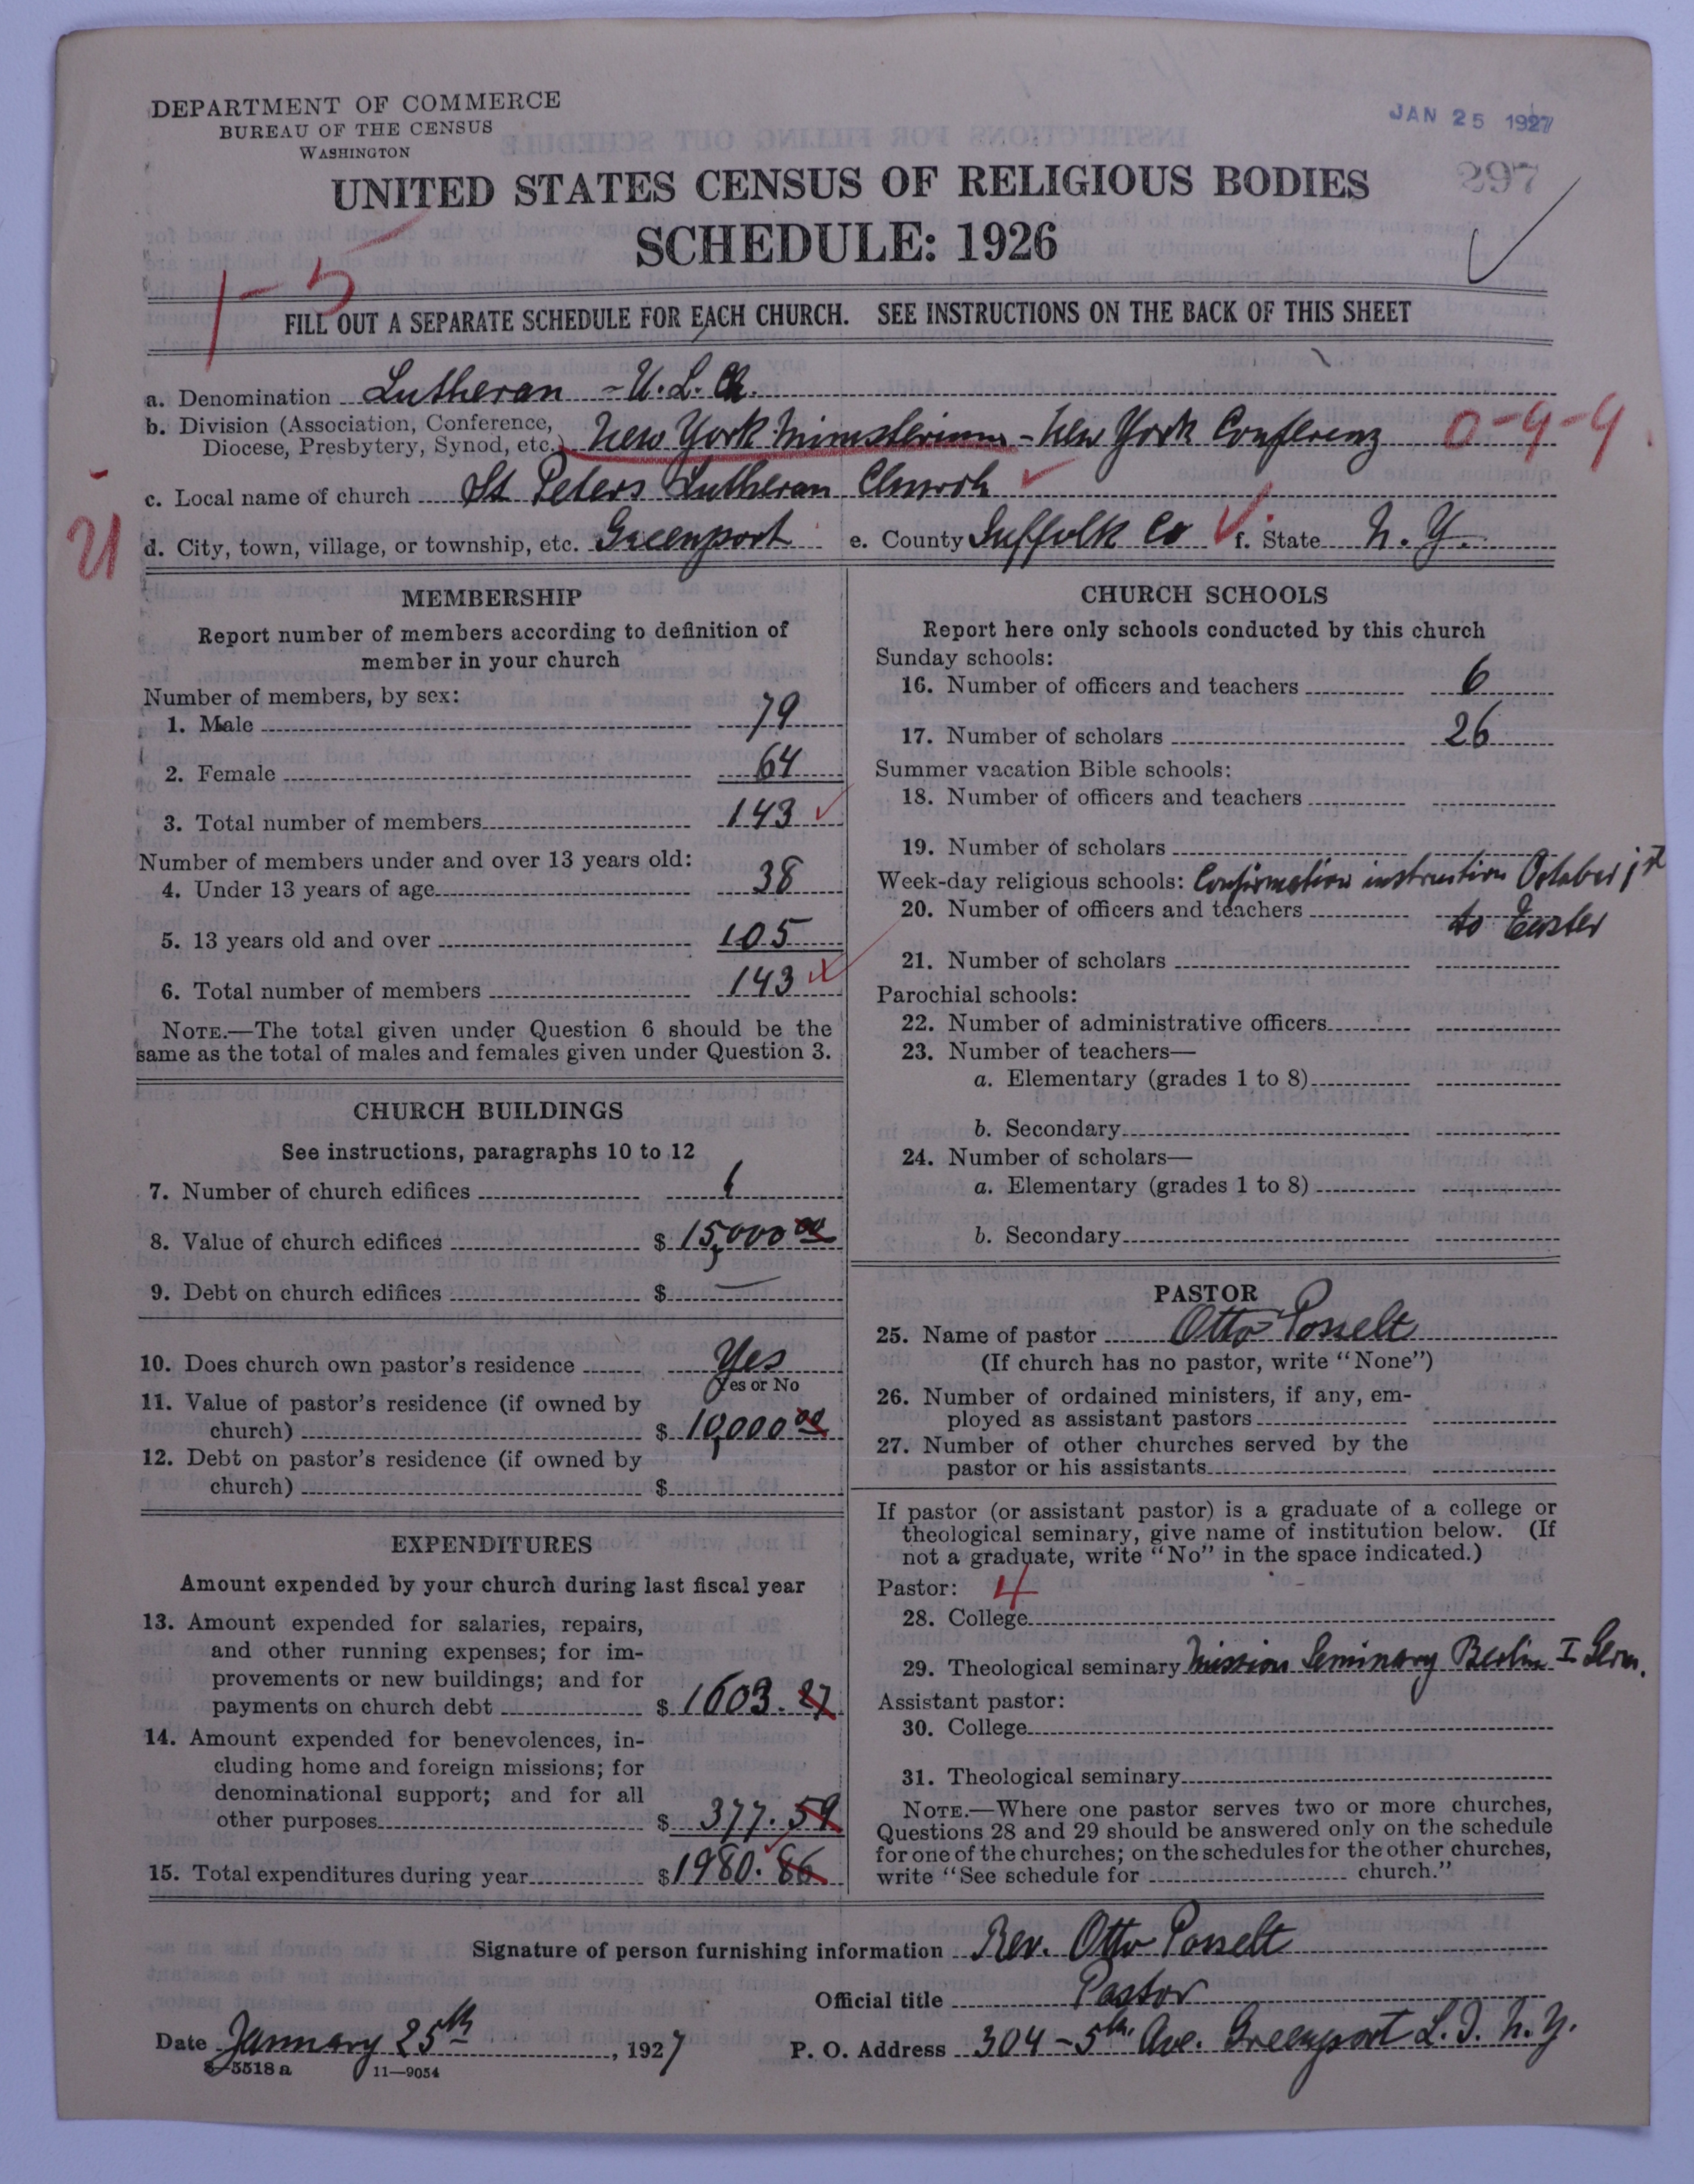 DEPARTMENT OF COMMERCE
BUREAU OF THE CENSUS
WASHINGTON
JAN 25 1927
297
UNITED STATES CENSUS OF RELIGIOUS BODIES
SCHEDULE: 1926
1-5
FILL OUT A SEPARATE SCHEDULE FOR EACH CHURCH. SEE INSTRUCTIONS ON THE BACK OF THIS SHEET
a. Denomination Lutheran - U. L. Ch.
b. Division (Association, Conference, Diocese, Presbytery, Synod, etc.) New York Ministerium - New York Conferenz 0-9-9
c. Local name of church St Peters Lutheran Church
d. City, town, village, or township, etc. Greenport e. County Suffolk Co f. State N. Y.
MEMBERSHIP
Report number of members according to definition of
member in your church
Number of members, by sex:
1. Male 79
2. Female 64
3. Total number of members 143
Number of members under and over 13 years old:
4. Under 13 years of age 38
5. 13 years old and over 105
6. Total number of members 143
NOTE.—The total given under Question 6 should be the
same as the total of males and females given under Question 3.
CHURCH BUILDINGS
See instructions, paragraphs 10 to 12
7. Number of church edifices 1
8. Value of church edifices $ 15,000 00
9. Debt on church edifices $ —
10. Does church own pastor's residence Yes
Yes or No
11. Value of pastor's residence (if owned by
church) $ 10,000 00
12. Debt on pastor's residence (if owned by
church) $
EXPENDITURES
Amount expended by your church during last fiscal year
13. Amount expended for salaries, repairs,
and other running expenses; for im-
provements or new buildings; and for
payments on church debt $ 1603. 27
14. Amount expended for benevolences, in-
cluding home and foreign missions; for
denominational support; and for all
other purposes $ 377. 59
15. Total expenditures during year $ 1980. 86
CHURCH SCHOOLS
Report here only schools conducted by this church
Sunday schools:
16. Number of officers and teachers 6
17. Number of scholars 26
Summer vacation Bible schools:
18. Number of officers and teachers
19. Number of scholars
Week-day religious schools: Confirmation instruction October 1st
20. Number of officers and teachers to Easter
21. Number of scholars
Parochial schools:
22. Number of administrative officers
23. Number of teachers—
a. Elementary (grades 1 to 8)
b. Secondary
24. Number of scholars—
a. Elementary (grades 1 to 8)
b. Secondary
PASTOR
25. Name of pastor Otto Posselt
(If church has no pastor, write "None")
26. Number of ordained ministers, if any, em-
ployed as assistant pastors
27. Number of other churches served by the
pastor or his assistants
If pastor (or assistant pastor) is a graduate of a college or
theological seminary, give name of institution below. (If
not a graduate, write "No" in the space indicated.)
Pastor: 4
28. College
29. Theological seminary Mission Seminary Berlin I Germ.
Assistant pastor:
30. College
31. Theological seminary
NOTE.—Where one pastor serves two or more churches,
Questions 28 and 29 should be answered only on the schedule
for one of the churches; on the schedules for the other churches,
write "See schedule for church."
Signature of person furnishing information Rev. Otto Posselt
Official title Pastor
Date January 25th, 1927 P. O. Address 304 - 5th Ave. Greenport L. I. N. Y.
8-5518 a 11—9054